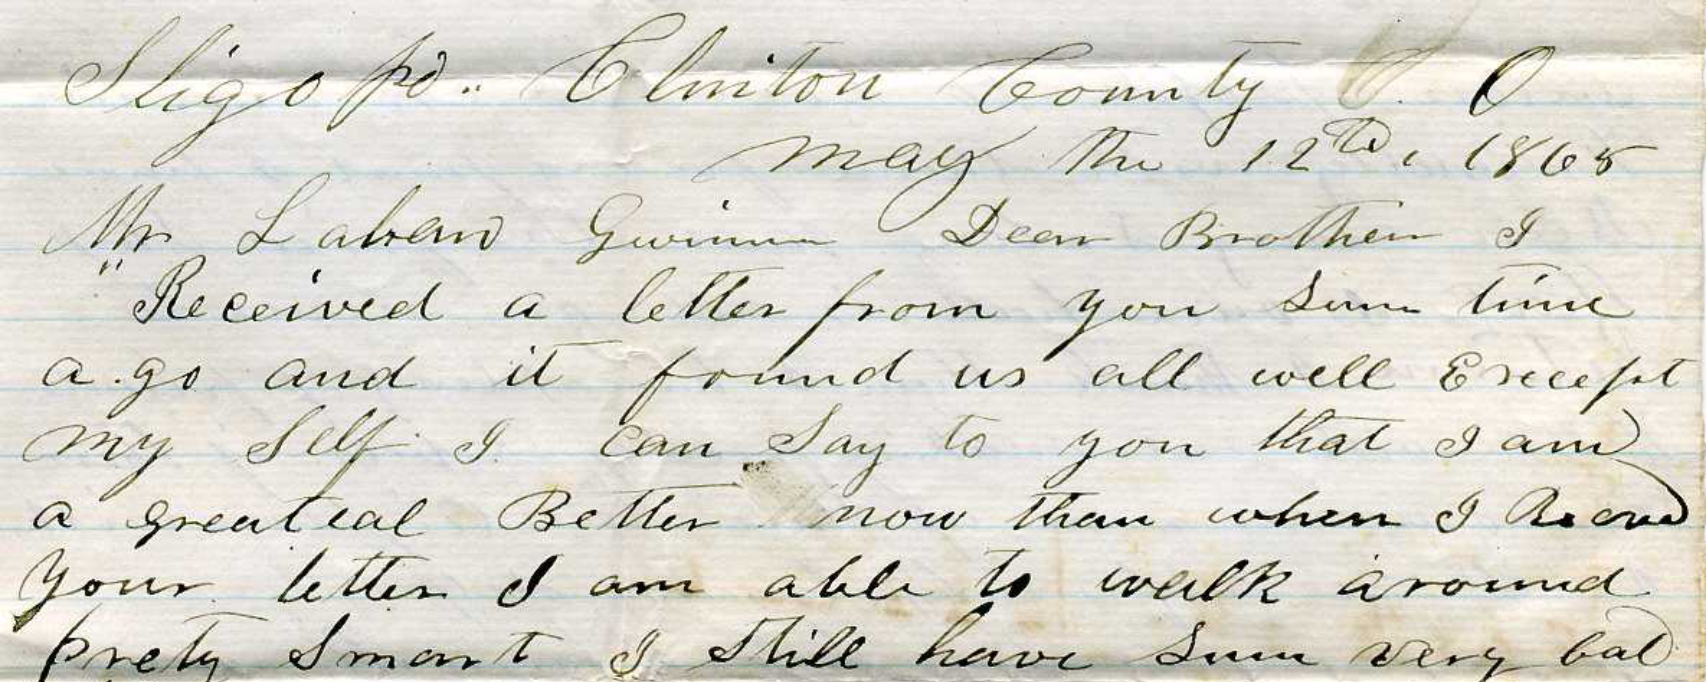 Sligo po.. Clinton County O
May the 12th, 1865
Mr Laban Gwinn Dear Brother I
"Received a letter from you Sum time
a.go and it found us all well Except
my Self. I can Say to you that I am
a greateal Better now than when I Recvd
your letter I am able to walk around
prety Smart I Still have Sum very bad